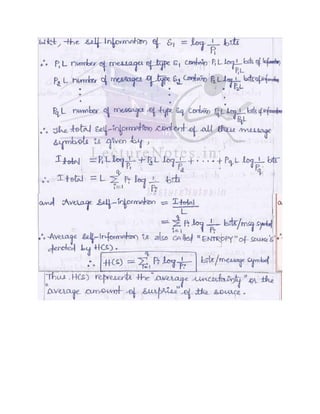 WKT, the self Information of S1 = log 1/P1 bits
∴ P1L number of messages of type S1 contain P1L log 1/P1L bits of Information
P2L number of messages of type S2 contain P2L log 1/P2L bits of Information
⋮ ⋮ ⋮
PqL number of messages of type Sq contain PqL log 1/PqL bits of Information
∴ The total self-information content of all these message
symbols is given by,
LectureNotes.in
I total = P1L log 1/P1 + P2L log 1/P2 + ····· + PqL log 1/Pq bits
∴ I total = L q∑i=1 Pi log 1/Pi bits
and Average self-information = I total / L
= q∑i=1 Pi log 1/Pi bits/msg symbol
∴ Average self-Information is also called "ENTROPY" of source S
denoted by H(S).
∴ H(S) = q∑i=1 Pi log 1/Pi bits/message symbol
Thus H(S) represents the "average uncertainty" or the
"average amount of surprise" of the source.